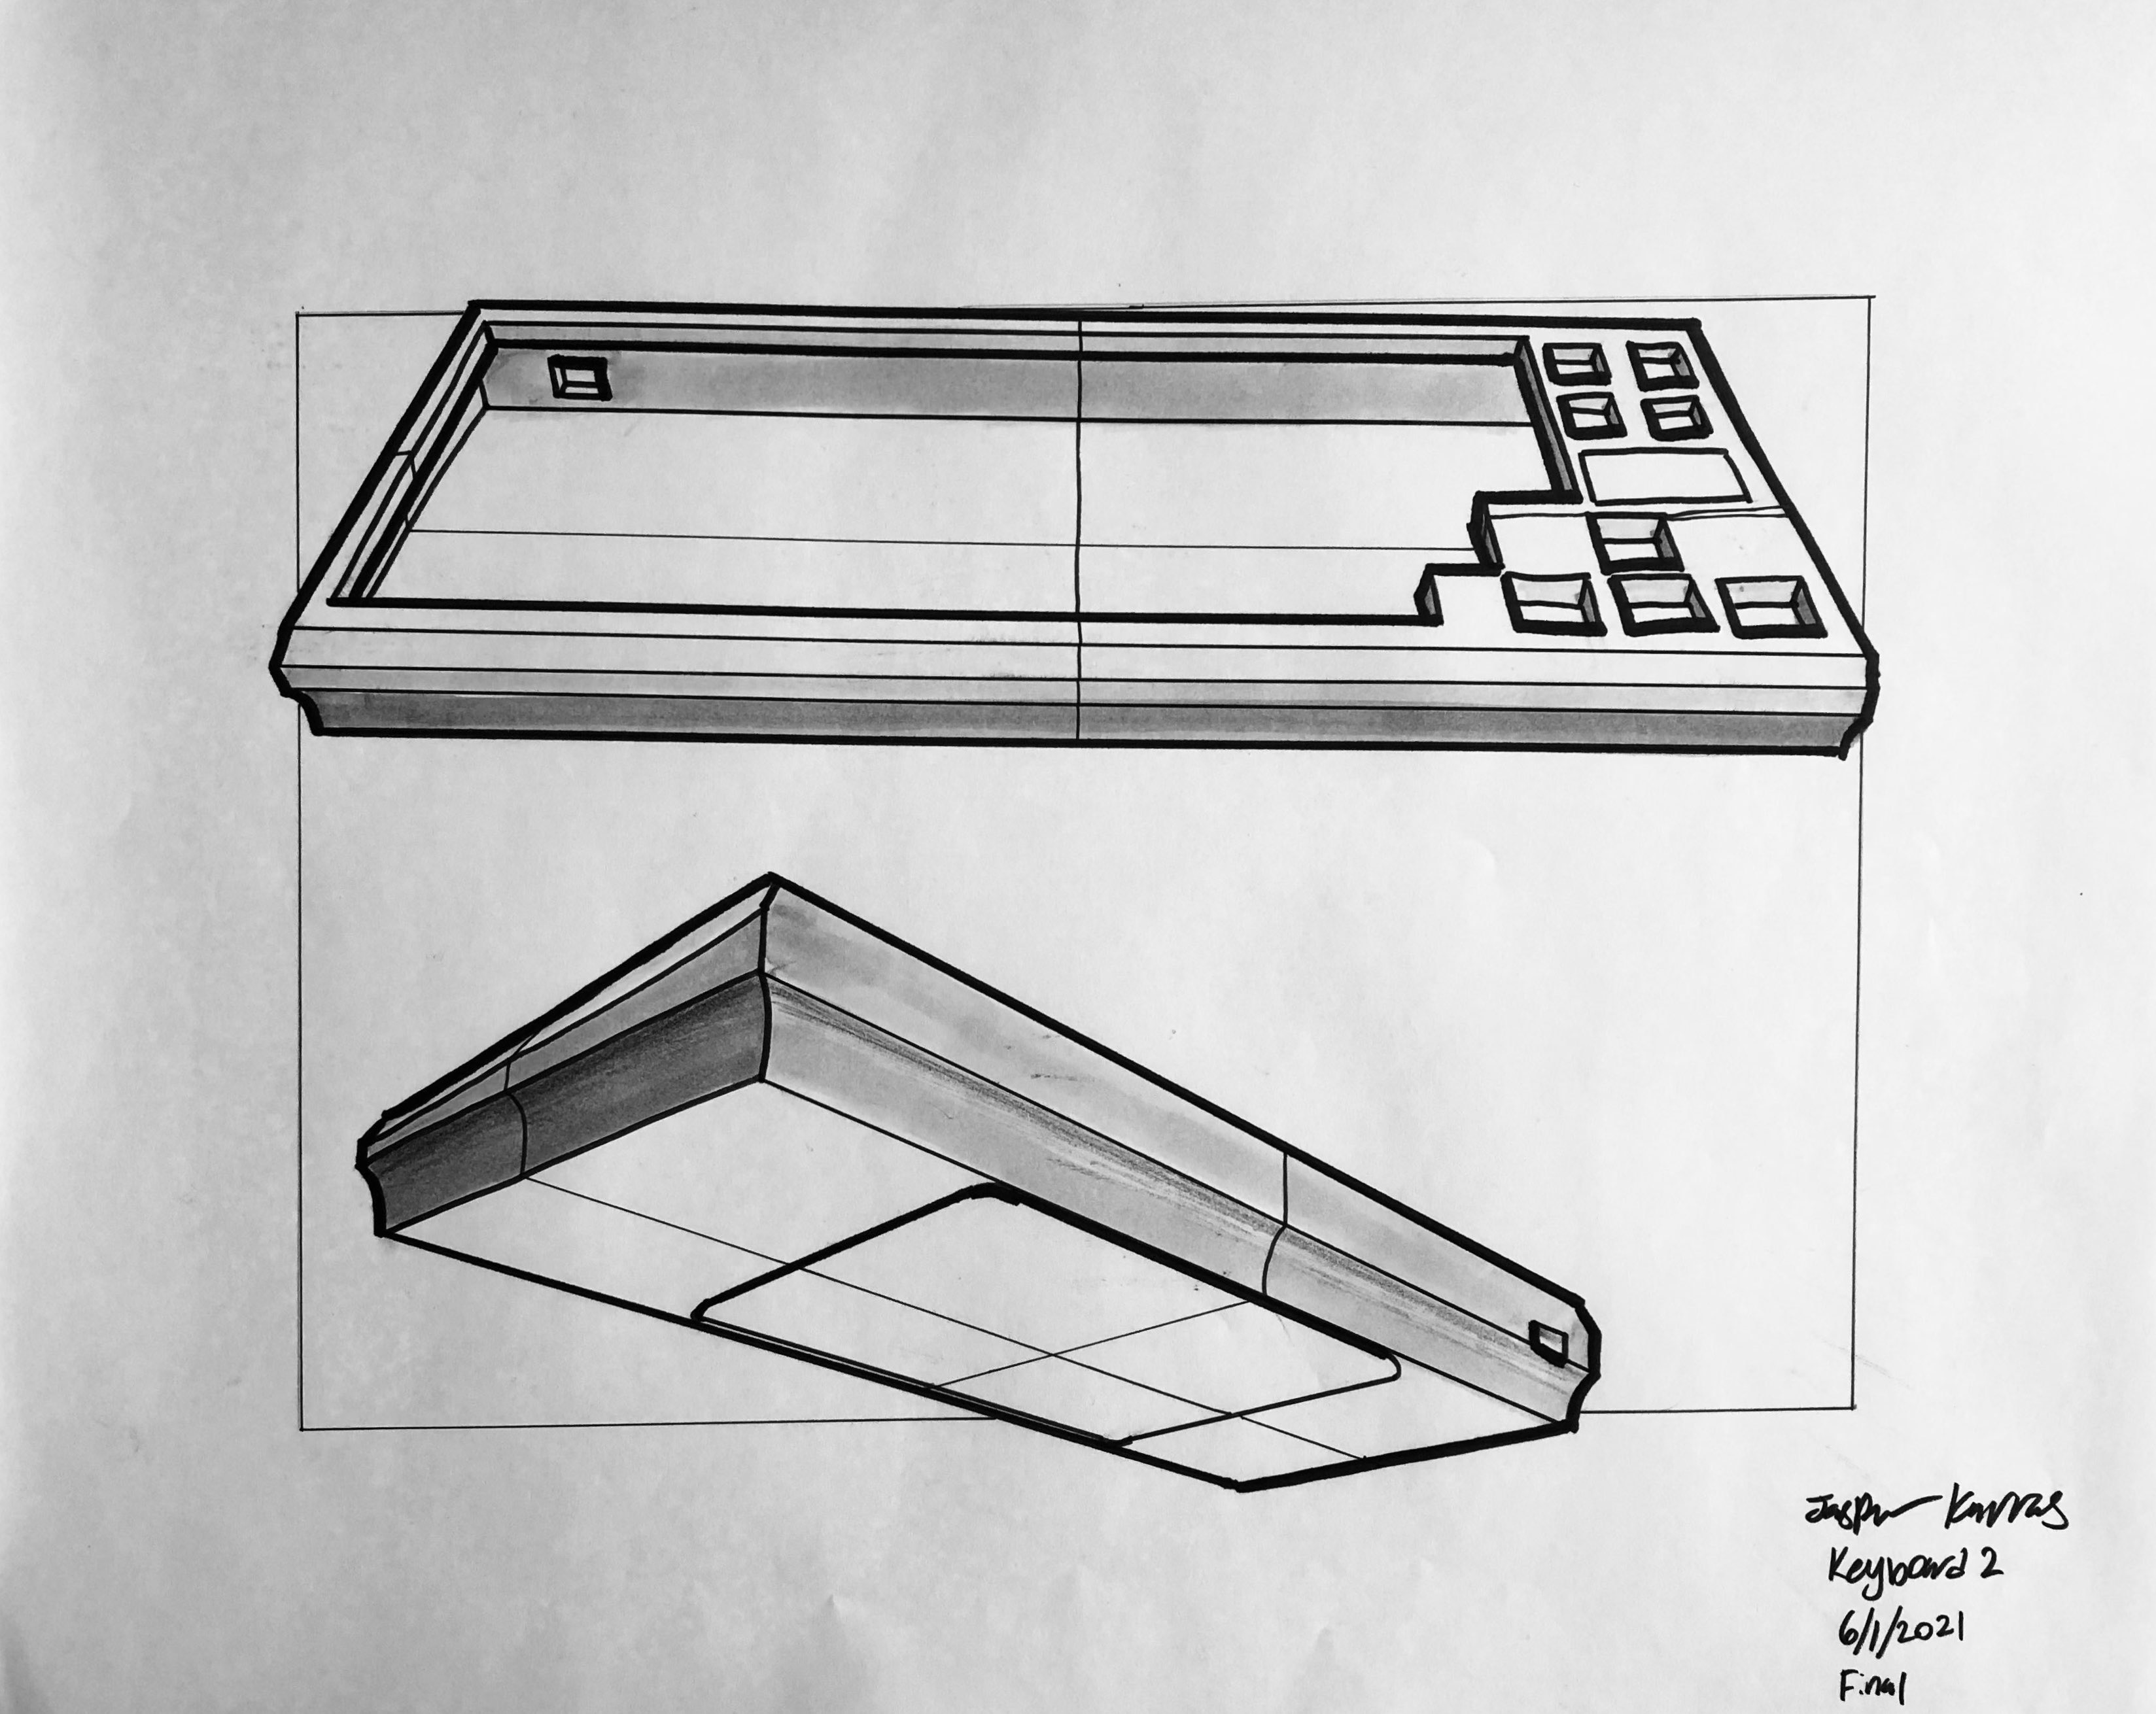 Jasper Karras
Keyboard 2
6/1/2021
Final